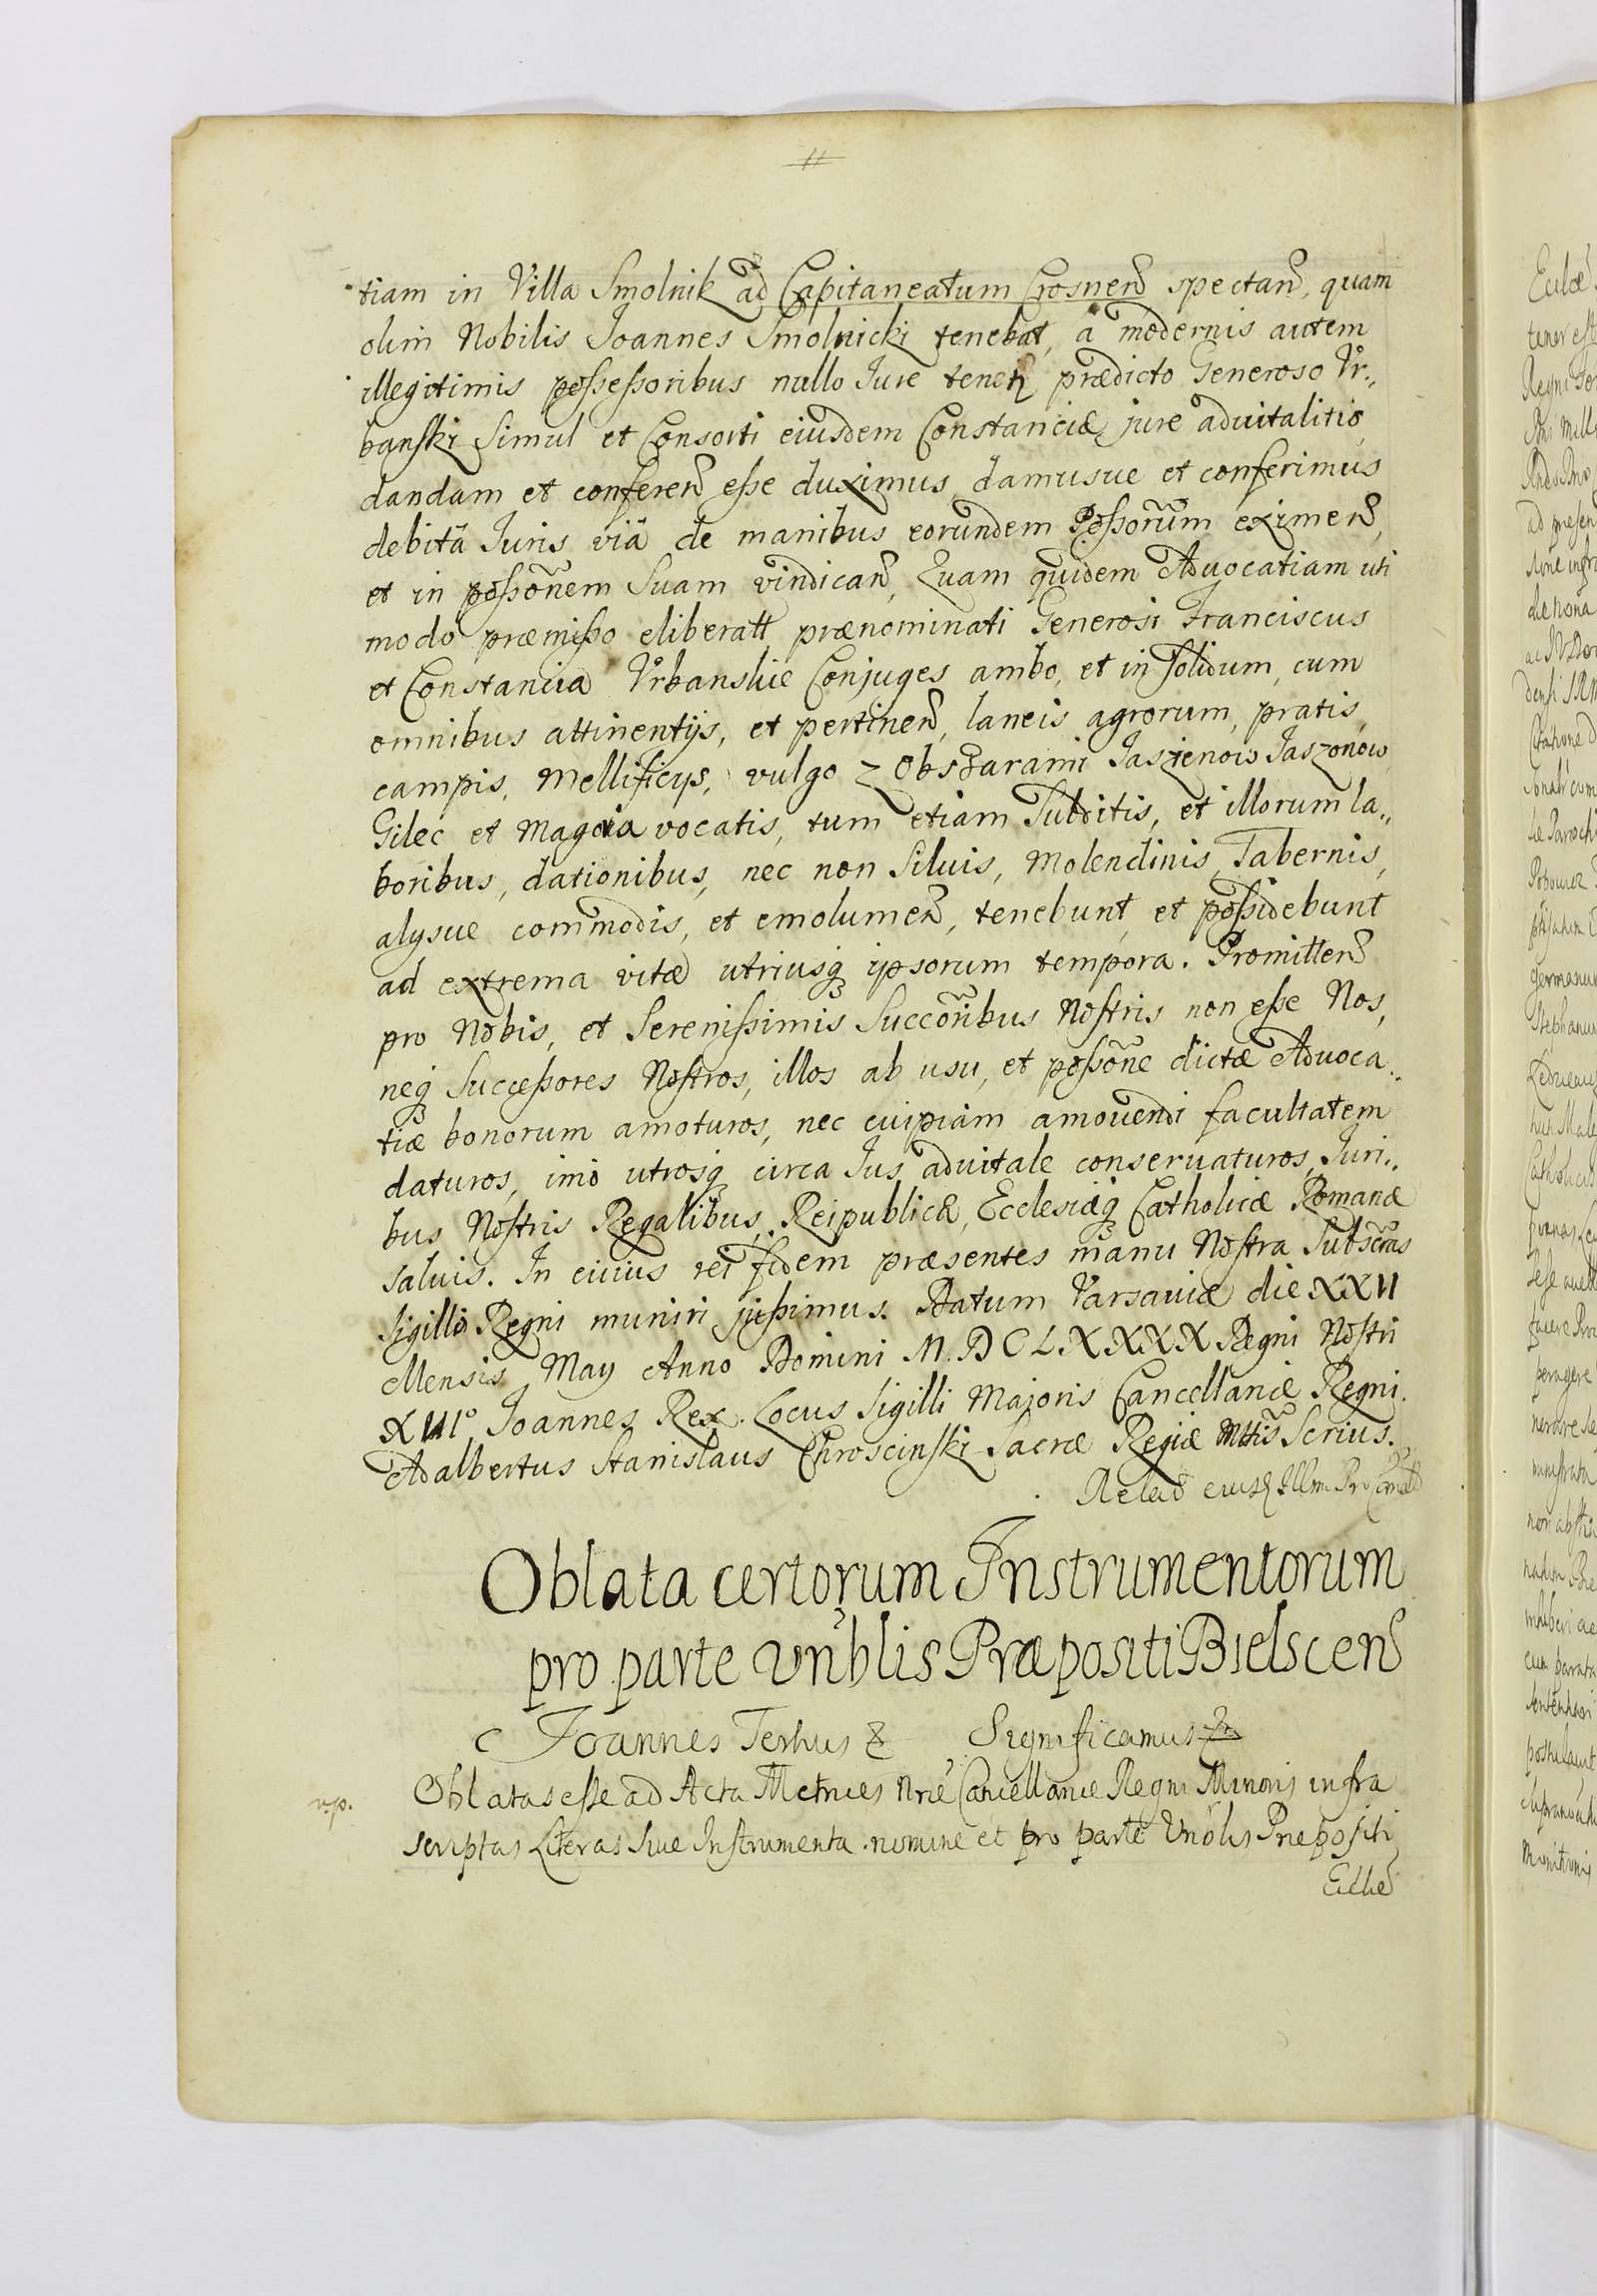 tiam in Villa Smolnik ad Capitaneatum Crosnen spectan, quam
olim Nobilis Joannes Smolnicki tenebat, a modernis autem
illegitimis possessoribus nullo Jure tener, prædicto Generoso Vr„
banski simul et Consorti eiusdem Constanciæ jure aduitalitio
dandam et conferen esse duximus, damusue et conferimus
debitâ Juris viâ de manibus eorundem Possorum eximen,
et in possonem Suam vindican, Quam quidem Aduocatiam uti
modo præmisso eliberatt prænominati Generosi Franciscus
et Constancia Vrbanskie Conjuges ambo, et in solidum, cum
omnibus attinentijs, et pertinen, laneis agrorum, pratis,
campis, Mellificijs, vulgo z Obszarami Jaszienois Jaszonow
Gilec et Magoria vocatis, tum etiam Subditis, et illorum la„
boribus, dationibus, nec non Siluis, Molendinis, Tabernis,
alijsue commodis, et emolumen, tenebunt, et possidebunt
ad extrema vitæ utriusq ipsorum tempora. Promitten
pro Nobis, et Serenissimis Successoribus Nostris non esse Nos,
neq Successores Nostros, illos ab usu, et possone dictæ Aduoca„
tiæ bonorum amoturos, nec cuipiam amouendi facultatem
daturos, imo utrosq circa Jus aduitale conseruaturos, Juri„
bus Nostris Regalibus, Reipublicæ, Ecclesiæq Catholicæ Romanæ
saluis. In cuius rei fidem præsentes manu Nostra Subscras
Sigillo Regni muniri jussimus. Datum Varsauiæ die XXII
Mensis May Anno Domini M.DCLXXXX Regni Nostri
XVII° Joannes Rex. Locus Sigilli Majoris Cancellariæ Regni.
Adalbertus Stanislaus Chroscinski Sacræ Regiæ Mttis Scrius.
Relao eiusd Illmi Pro
Oblata certorum Instrumentorum
pro parte Vnblis Præpositi Bielscen
Joannes Tertius Significamus
v.p.
Oblatas esse ad Acta Metrices Nræ Cancellariæ Regni Minoris infra
scriptas Literas siue Instrumenta nomine et pro parte Vnblis Præpositi